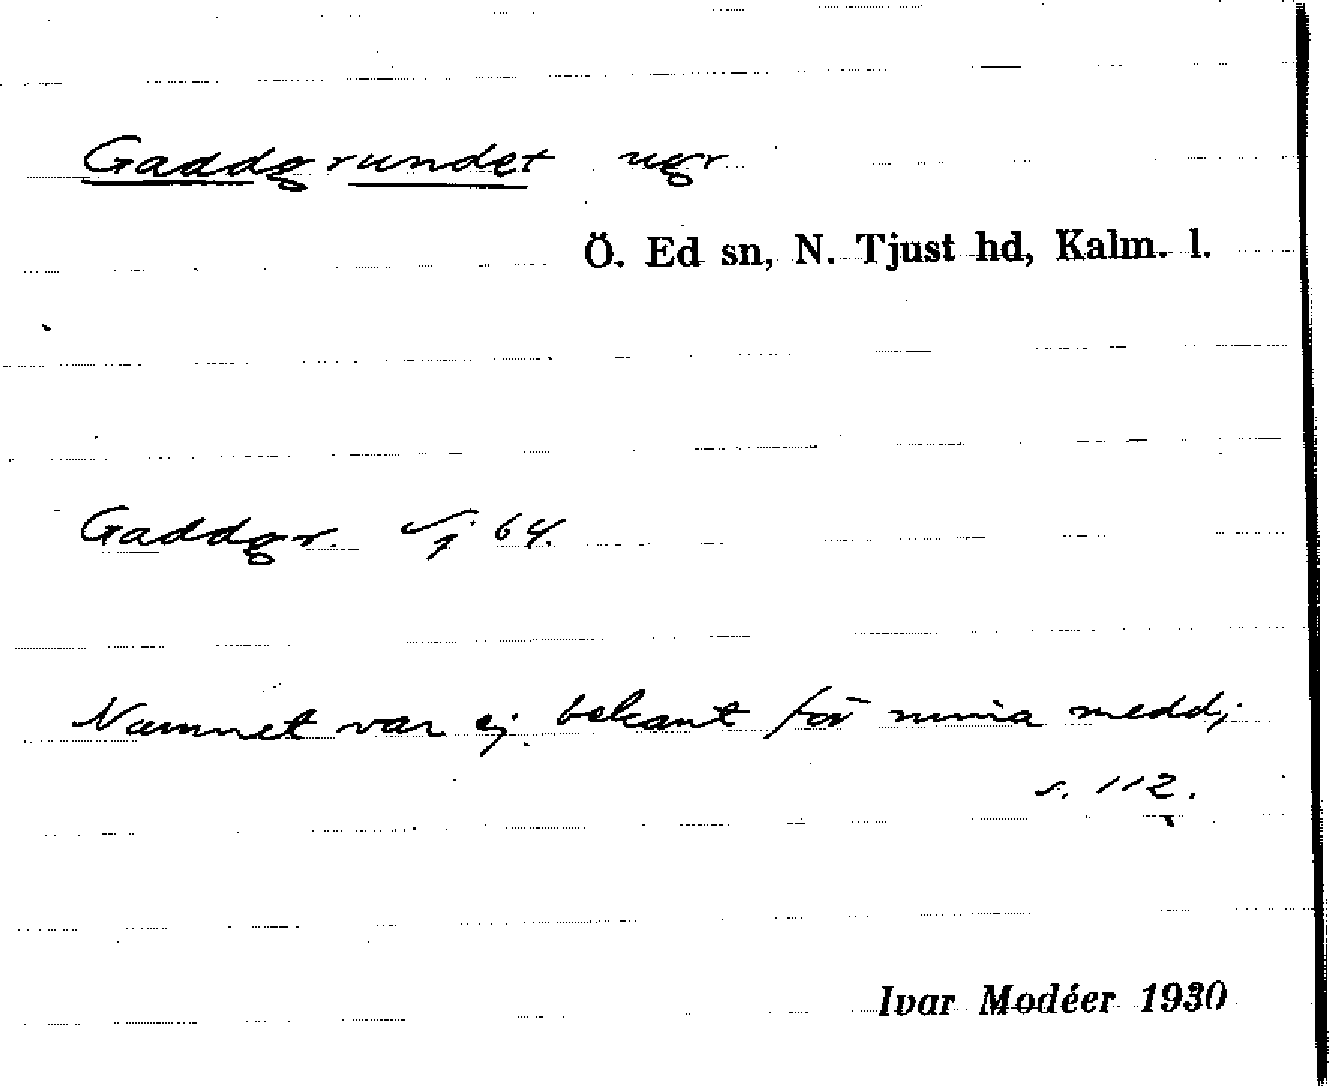 Gaddgrundet ugr
Ö. Ed sn, N. Tjust hd, Kalm. l.
Gaddgr. Sj 64.
Namnet var ej bekant för mina medd;
s. 112.
Ivar Modéer 1930